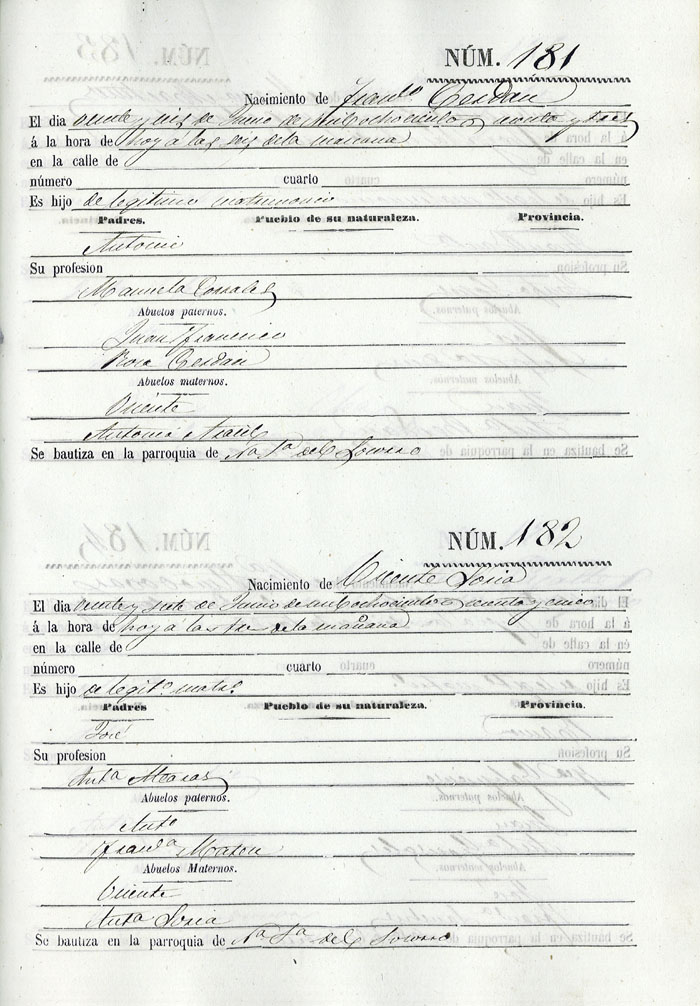 NÚM. 181
Nacimiento de Fran.co Cerdan
El dia veinte y seis de Junio de mil ochocientos y
á la hora de hoy á las seis de la mañana
en la calle de
número cuarto
Es hijo de legitimo matrimonio
Padres. Pueblo de su naturaleza. Provincia.
Antonio
Su profesion
Manuela Gonzalez
Abuelos paternos.
Juan Francisco
Rosa Cerdan
Abuelos maternos.
Vicente
Antonia
Se bautiza en la parroquia de Na Sa del Socorro
NÚM. 182
Nacimiento de Vicente Soria
El dia veinte y siete de Junio de mil ochocientos y cinco
á la hora de hoy á las de la mañana
en la calle de
número cuarto
Es hijo de legito matro
Padres Pueblo de su naturaleza. Provincia.
José
Su profesion
Anta Macas
Abuelos paternos.
Anto
Franca
Abuelos Maternos.
Vicente
Anta Soria
Se bautiza en la parroquia de Na Sa del Socorro